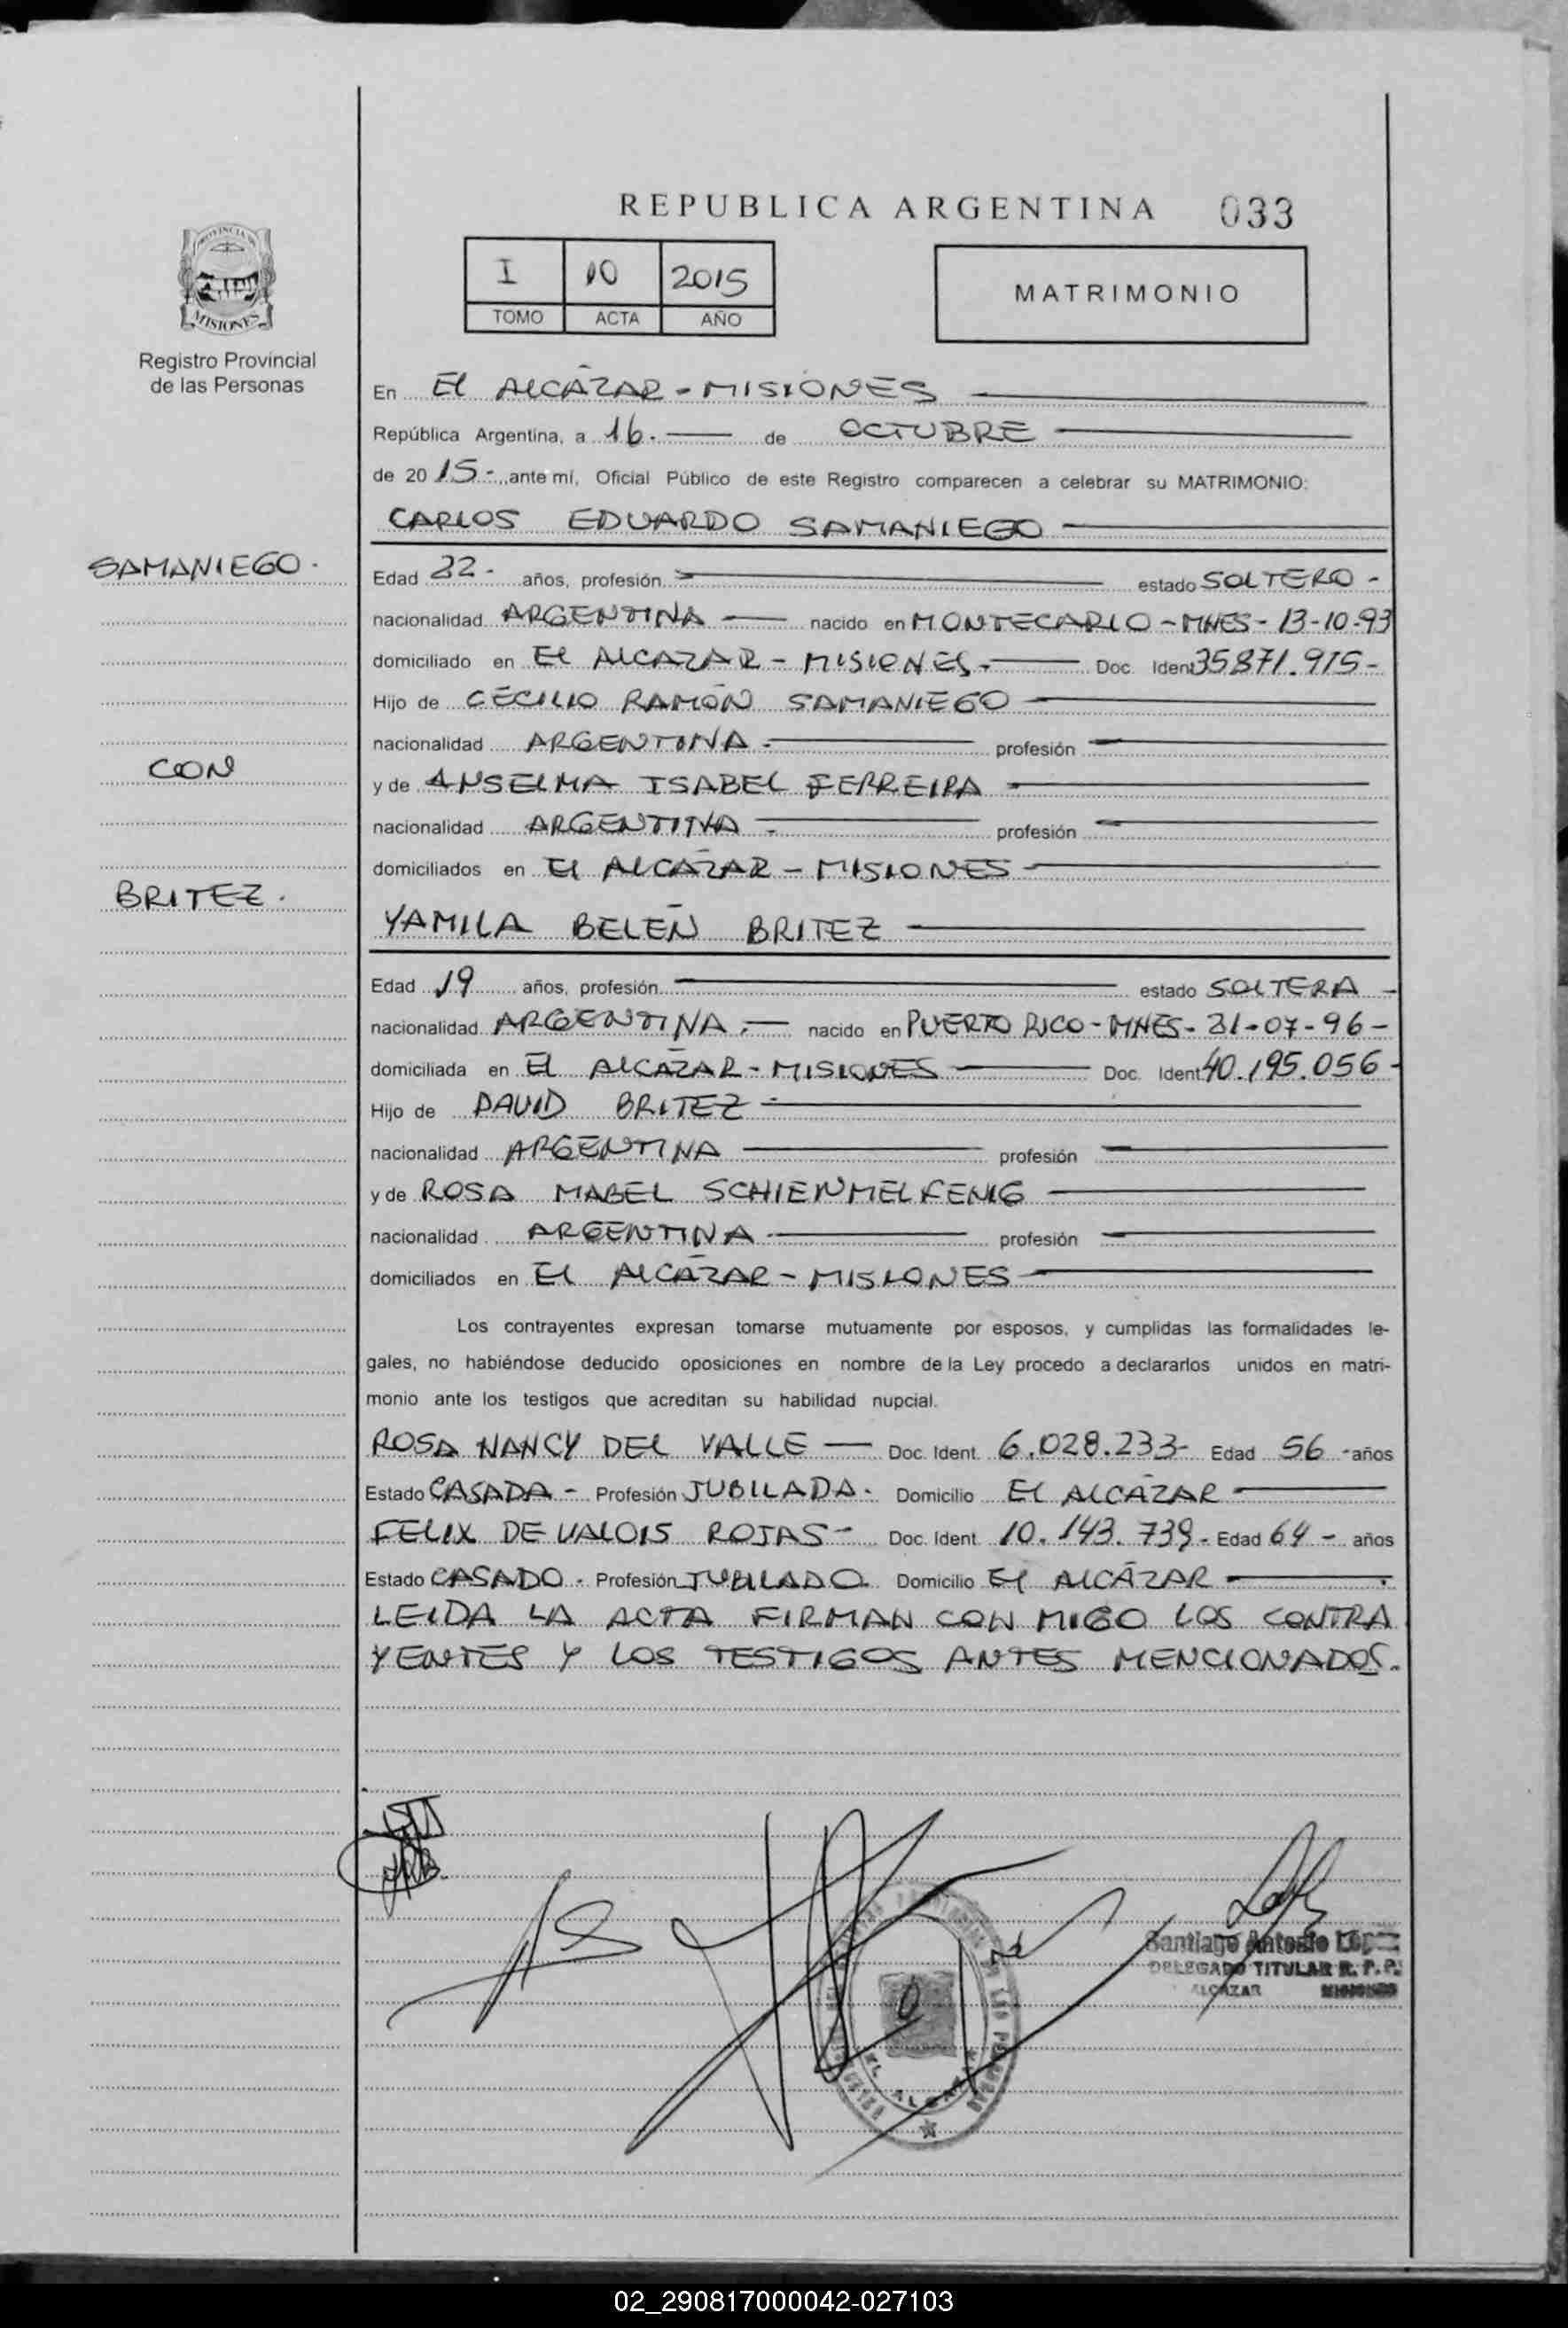 REPUBLICA ARGENTINA 033
I 10 2015
TOMO ACTA AÑO
MATRIMONIO
PROVINCIA DE
MISIONES
Registro Provincial
de las Personas
En El ALCÁZAR - MISIONES
República Argentina, a 16.- de OCTUBRE
de 2015-, ante mí, Oficial Público de este Registro comparecen a celebrar su MATRIMONIO:
CARLOS EDUARDO SAMANIEGO
SAMANIEGO.
Edad 22- años, profesión estado SOLTERO -
nacionalidad ARGENTINA nacido en MONTECARLO - MNES - 13-10-93
domiciliado en El ALCAZAR - MISIONES.- Doc. Ident 35871.915-
Hijo de CECILIO RAMÓN SAMANIEGO
nacionalidad ARGENTINA.- profesión
CON
y de ANSELMA ISABEL FERREIRA
nacionalidad ARGENTINA - profesión
domiciliados en El ALCÁZAR - MISIONES
BRITEZ.
YAMILA BELÉN BRITEZ
Edad 19 años, profesión estado SOLTERA -
nacionalidad ARGENTINA.- nacido en PUERTO RICO - MNES - 31-07-96-
domiciliada en El ALCÁZAR - MISIONES Doc. Ident. 40.195.056-
Hijo de DAVID BRITEZ
nacionalidad ARGENTINA profesión
y de ROSA MABEL SCHIENMELFENIG
nacionalidad ARGENTINA profesión
domiciliados en El ALCÁZAR - MISIONES
Los contrayentes expresan tomarse mutuamente por esposos, y cumplidas las formalidades le-
gales, no habiéndose deducido oposiciones en nombre de la Ley procedo a declararlos unidos en matri-
monio ante los testigos que acreditan su habilidad nupcial.
ROSA NANCY DEL VALLE Doc. Ident. 6.028.233- Edad 56 -años
Estado CASADA - Profesión JUBILADA. Domicilio El ALCÁZAR
FELIX DE VALOIS ROJAS - Doc. Ident. 10.143.739- Edad 64 - años
Estado CASADO. Profesión JUBILADO Domicilio El ALCÁZAR
LEIDA LA ACTA FIRMAN CON MIGO LOS CONTRA
YENTES Y LOS TESTIGOS ANTES MENCIONADOS.
Santiago Antonio López
DELEGADO TITULAR R. P. P.
ALCAZAR MISIONES
02_290817000042-027103